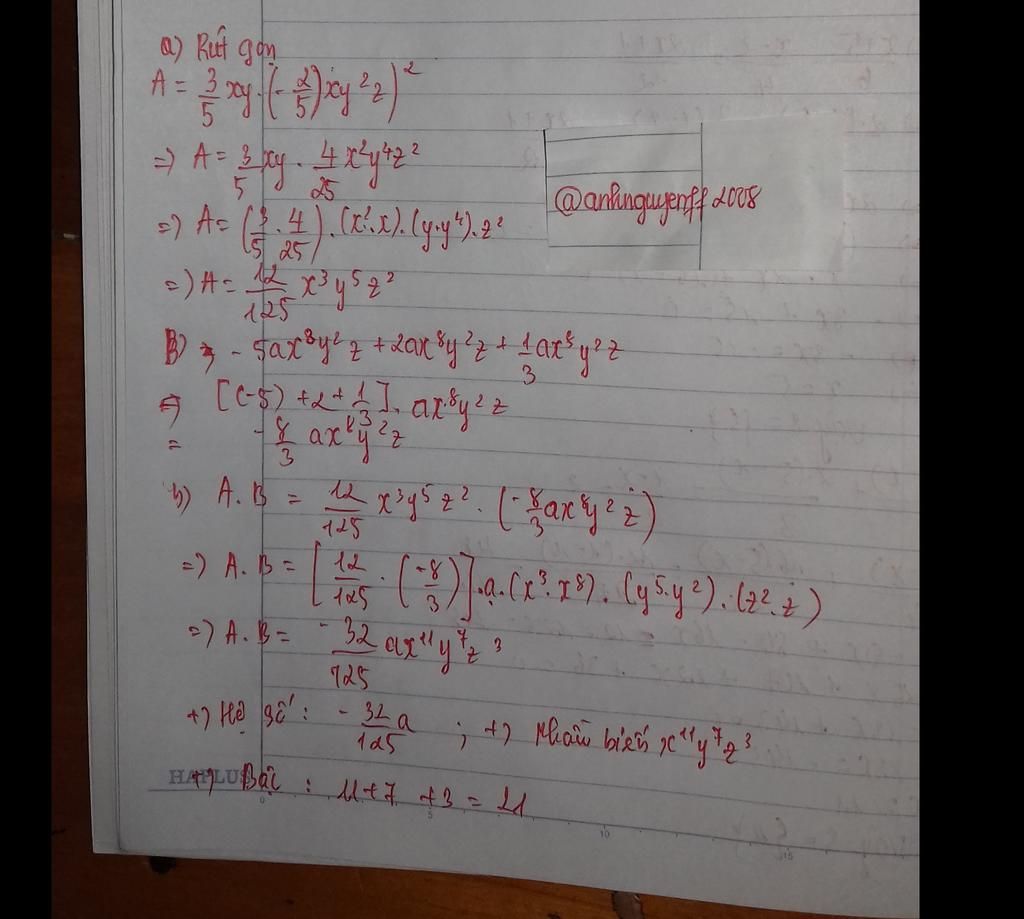 a) Rút gọn
A = 3/5 xy . (-2/5) xy²z)²
=) A = 3/5 xy . 4/25 x²y⁴z²
@anhnguyenff2008
=) A = (3/5 . 4/25) . (x².x) . (y.y⁴) . z²
=) A = 12/125 x³y⁵z²
B) = - 5ax⁸y²z + 2ax⁸y²z + 1/3 ax⁸y²z
= [(-5) + 2 + 1/3] . ax⁸y²z
= -8/3 ax⁸y²z
b) A.B = 12/125 x³y⁵z² . (-8/3 ax⁸y²z)
=) A.B = [12/125 . (-8/3)] . a . (x³.x⁸) . (y⁵.y²) . (z².z)
=) A.B = -32/125 ax¹¹y⁷z³
+) Hệ số : -32/125 a ; +) Phần biến x¹¹y⁷z³
+) Bậc : 11+7 +3 = 21